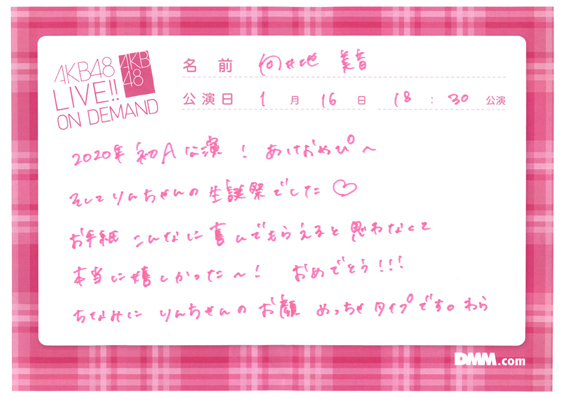 AKB48
LIVE!!
ON DEMAND
AKB
48
名前 向井地 美音
公演日 1月16日 18:30公演
2020年 初A公演！あけおめぴ〜
そしてりんちゃんの生誕祭でした♡
お手紙 こんなに喜んでもらえると思わなくて
本当に嬉しかった〜！ おめでとう！！！
ちなみに りんちゃんのお顔 めっちゃタイプです。わら
DMM.com